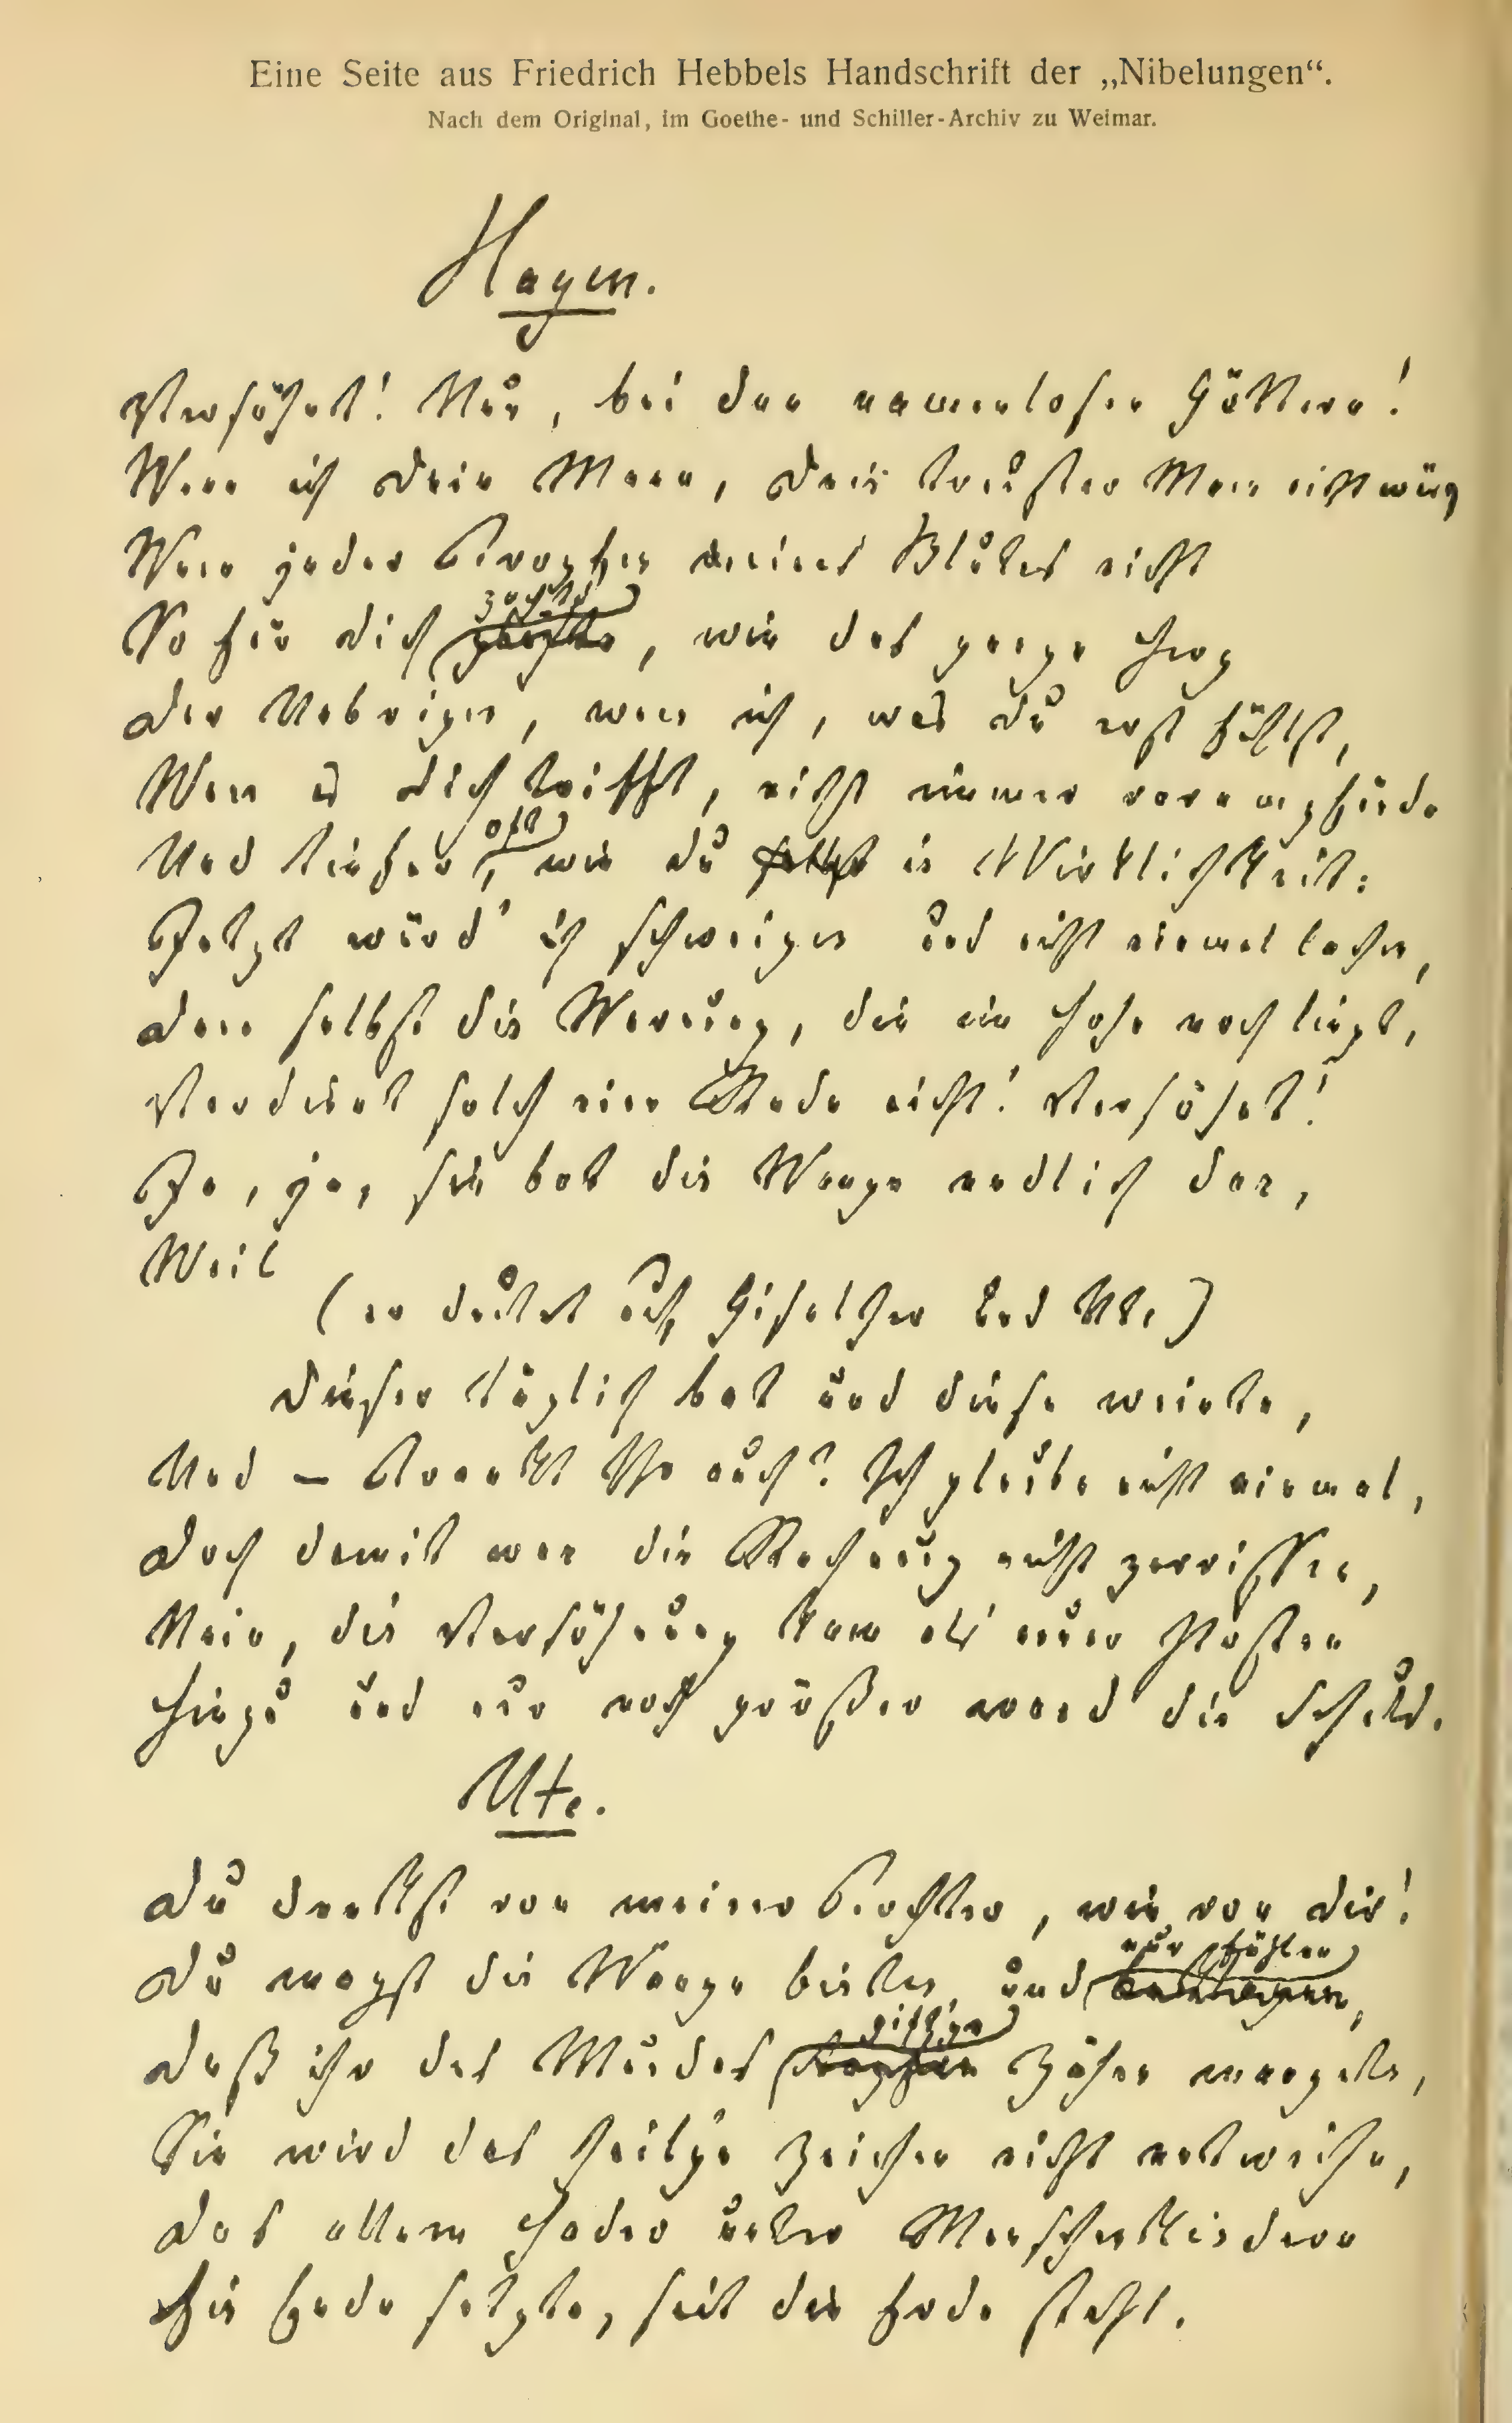 Eine Seite aus Friedrich Hebbels Handschrift der „Nibelungen“.
Nach dem Original, im Goethe- und Schiller-Archiv zu Weimar.
Hagen.
Versöhnt! Nun, bei den namenlosen Göttern!
Wenn ich dein Mann, dein treuster Mann nicht wär,
Wenn jeder Tropfen meines Blutes nicht
So für dich , wie das ganze Herz
Der Uebrigen, wenn ich, was du erst fühlst,
Wenn es dich trifft, nicht immer vorempfände
oft
Und tiefer, wie du selbst in Wirklichkeit:
Jetzt würd' ich schweigen und nicht einmal lachen,
Denn selbst die Warnung, die im Hohn noch liegt,
Verdient solch eine Rede nicht! Versöhnt!
Ja, ja, sie bot die Wange endlich dar,
Weil
(er deutet auf Giselher und Ute)
dieser täglich bat und diese weinte,
Und — Trankt Ihr auch? Ich glaube nicht einmal,
Doch damit war die Rechnung nicht zerrissen,
Nein, die Versöhnung kam als neuer Posten
Hinzu und nur noch größer ward die Schuld.
Ute.
Du denkst von meiner Tochter, wie von dir!
nur fühlen
Du magst die Wange bieten, und ,
giftge
Daß ihr des Mundes Zähne ,
Sie wird das heilge Zeichen nicht entweihn,
Das allem Hader unter Menschenkindern
Ein Ende setzte, seit die Erde steht.